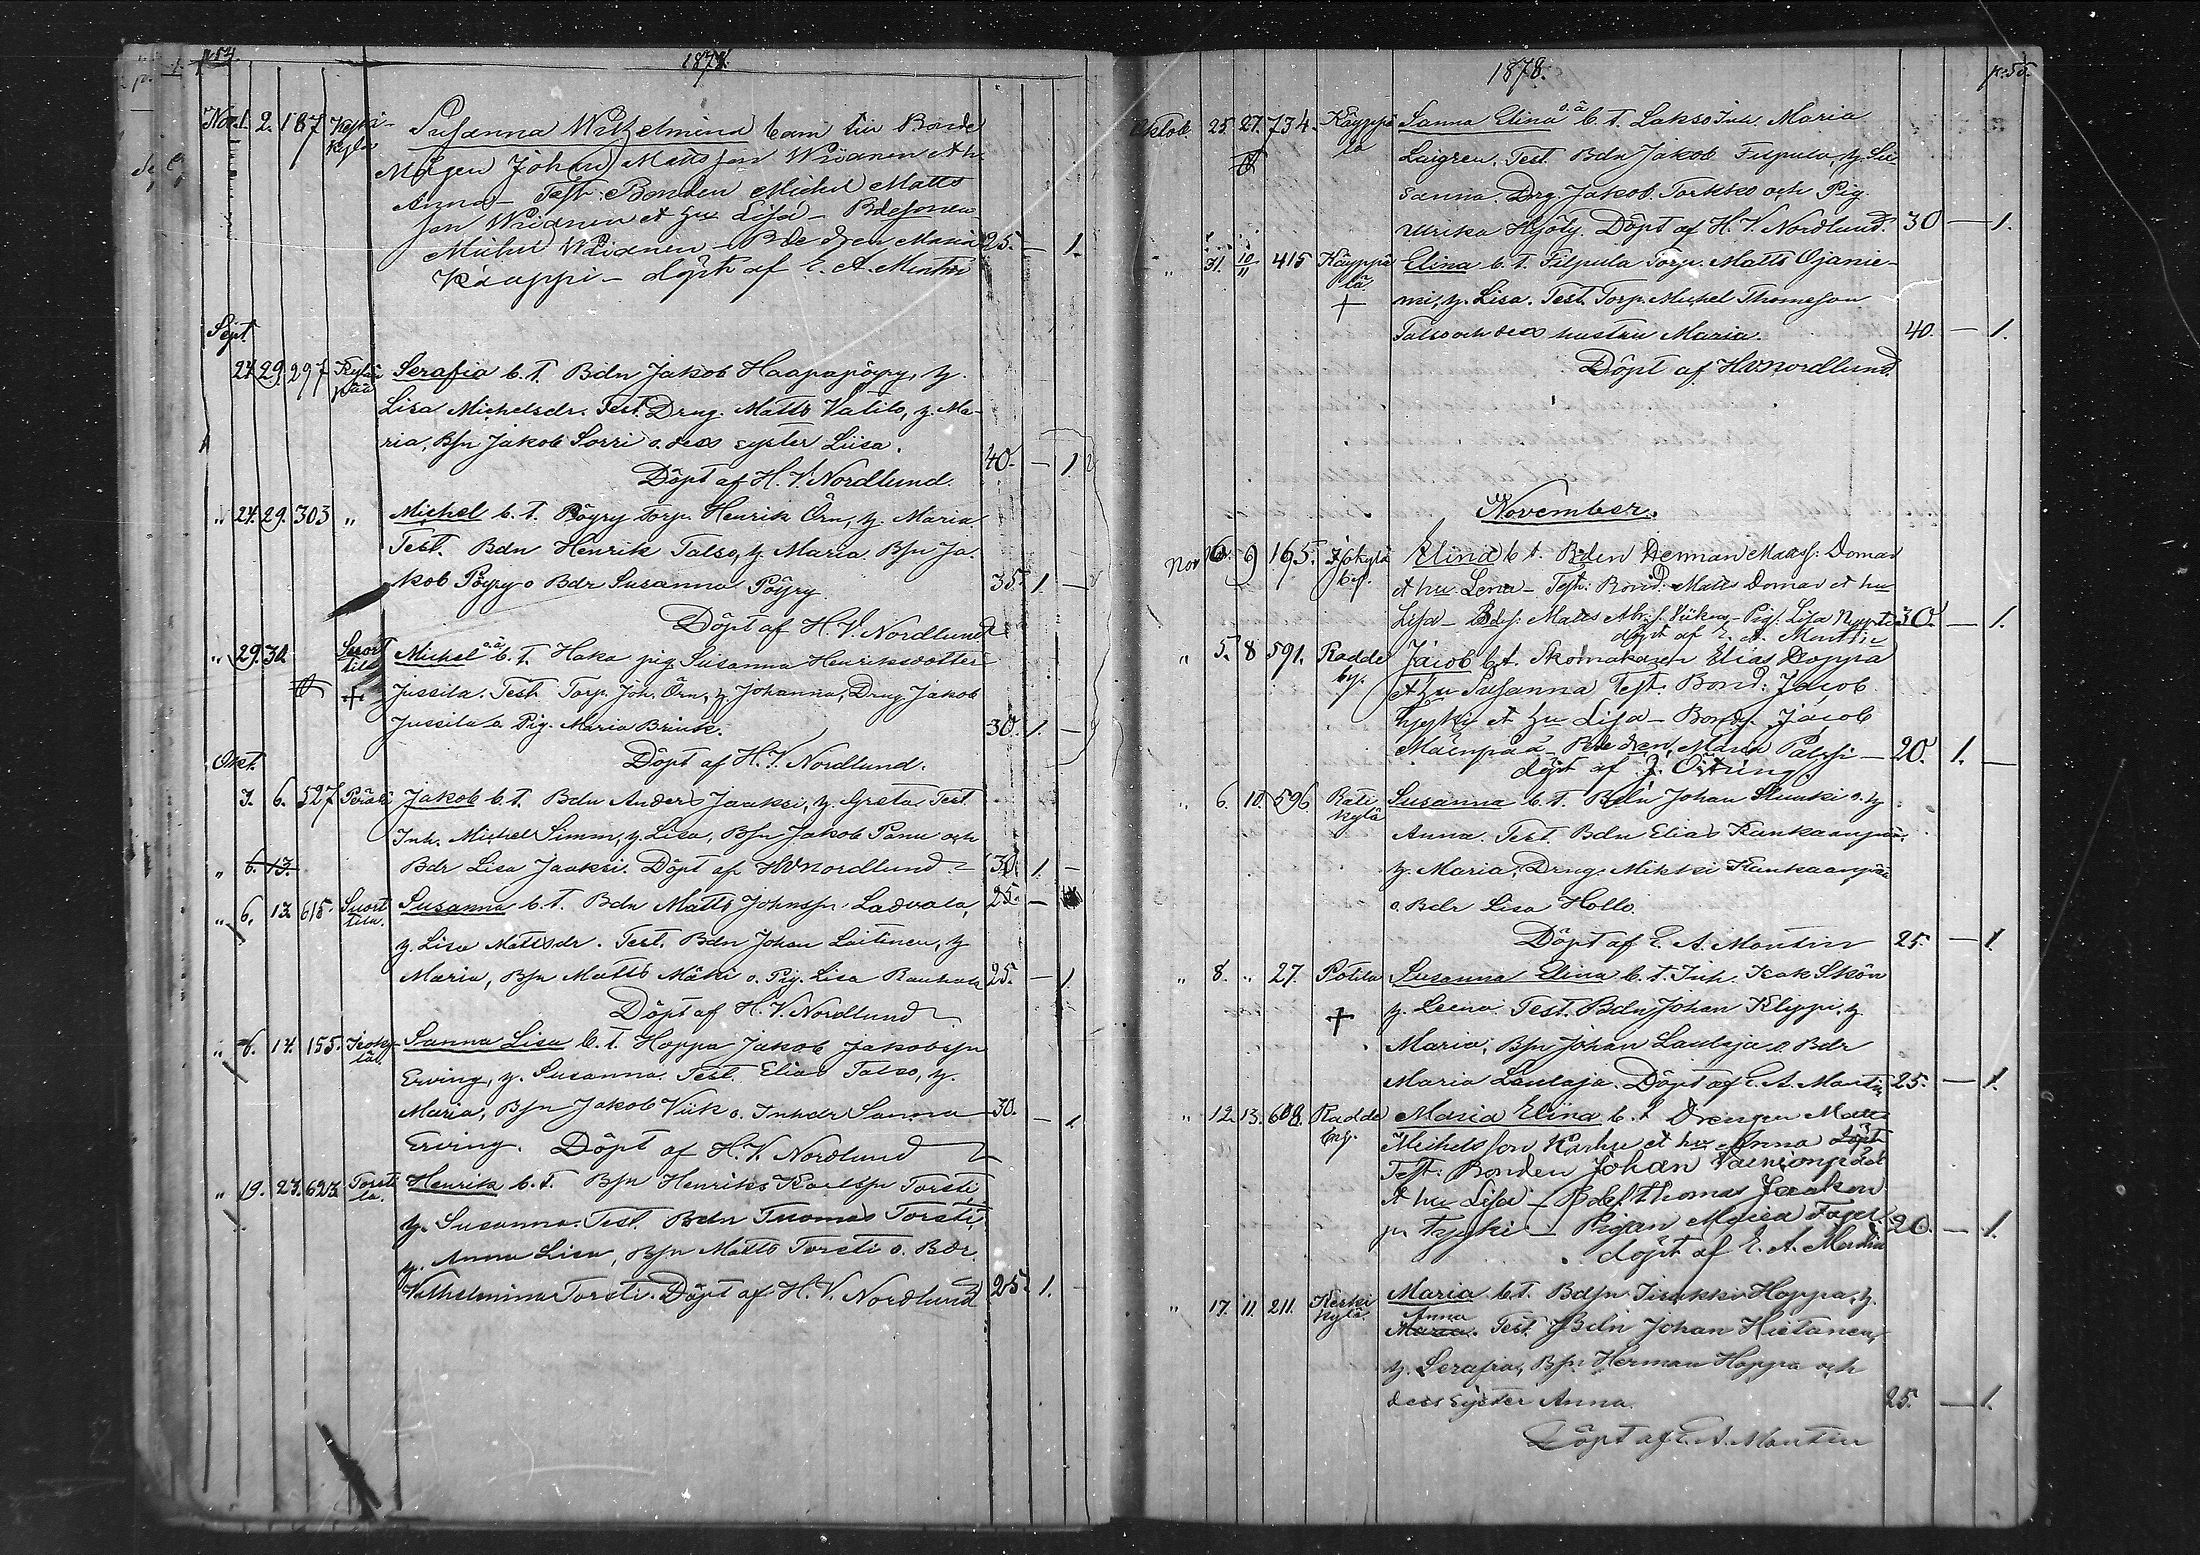 p. 54.
1878.
Nov. 1. 2. 187 Keski-kylä Susanna Wilhelmina barn till Bonde
Mågen Johan Mattsson Widnen et h.
Anna – Test: Bonden Michel Matts
son Widnen et hu Lisa – Bdesonen
Michel Widnen – Bde dren Maria 25. – 1.
Knuppi – döpt af E. A. Montin
Sept
24. 29. 297 Kylän pää Serafia b. t. Bdn Jakob Haapapöyry, h.
Lisa Michelsdr. Test. Drng. Matts Välilö, h. Ma-
ria, Bsn Jakob Sorri o. dess syster Liisa. 40. – 1
Döpt af H. V. Nordlund.
" 24. 29. 303 " Michel b. t. Pöyry Torp. Henrik Örn, h. Maria
Test. Bdn Henrik Talso, h. Maria Bsn Ja-
kob Pöyry o Bdr Susanna Pöyry 35. 1. –
Döpt af H. V. Nordlund
" 29. 30. Suort tila Michel o. ä. b. T. Haka pig Susanna Henriksdotter
+ Jussila. Test. Torp. Joh. Örn, h Johanna, Drng Jakob
Jussila o Pig. Maria Brink. 30. 1. –
Döpt af H. V. Nordlund.
Okt.
3. 6. 527 Perälä Jakob b. t. Bdn Anders Jaaksi, h. Greta Test
Inh. Michel Simm, h. Lisa, Bsn Jakob Panu och
" 6. 13. Bdr Lisa Jaaksi. Döpt af HVNordlund 30. 1. –
" 6. 13. 615. Suort tila. Susanna b. t. Bdn Matts Johnsn Ladvala, 25. –
h. Lisa Mattsdr. Test. Bdn Johan Laitinen, h
Maria, Bsn Matts Mäki o. Pig. Lisa Rauhala 25. – 1
Döpt af H. V. Nordlund
" 6. 14. 155. Isoky lä. Sanna Lisa b. t. Hoppa Jakob Jakobsn
Erving, h. Susanna. Test. Elias Talso, h.
Maria, Bsn Jakob Viik o. Inhdr Sanna 30. – 1.
Erving. Döpt af H. V. Nordlund
" 19. 23. 623. Torsti la. Henrik b. T. Bsn Henriks Karlsn Torsti
h. Susanna. Test. Bdn Tuomas Torsti,
h. Anna Lisa, Bsn Matts Torsti o. Bdr
Wilhelmina Torsti. Döpt af H. V. Nordlund 25. 1. –
1878.
p. 55.
Oktob. 25. 27. 734. Käyppä lä Sanna Elina o. ä b. T. Lakso Inh. Maria
Laigren. Test. Bdn Jakob Filpula h. Su-
sanna. Drg Jakob Torkko och Pig.
Ulrika Hjöty. Döpt af H. V. Nordlund. 30 – 1.
" 31. 10/11 415 Käyppä lä Elina b. T. Filpula Torp. Matts Ojanie-
+ mi, h. Lisa. Test. Torp. Michel Thomeson
Talso och dess hustru Maria. 40. – 1.
Döpt af HVNordlund.
November.
Nov 6. 9 165. Isokylä by. Elina b t. Bden Herman Mattss. Domar
et hu. Lena – Test: Bond. Matts Domar et hu
Lisa – Bds: Matts Abr. s. Viiken – Pig. Lisa 30. – 1.
döpt af E. A. Montin
" 5. 8 591. Radde by. Jacob b. t. Skomakaren Elias Doppa
et hu Susanna Test: Bond: Jacob
Kyyki et hu Lisa – Bonds. Jacob
Mäenpää – Bde dren Maria Palssi – 20. 1. –
döpt af J. Östring.
" 6. 10. 596 Rati kylä Susanna b. t. Bdn Johan Slunki o. h
Anna. Test. Bdn Elias Kankaanpää
h. Maria, Drng. Mikki Kankaanpää
o. Bdr Lisa Hollo.
Döpt af E. A. Montin 25. – 1.
" 8. " 27. Potila Susanna Elina b. t. Inh. Isak Skön
+ h. Leena. Test. Bdn Johan Klippi, h.
Maria, Bsn Johan Laulaja o. Bdr
Maria Laulaja. Döpt af E. A. Montin 25. – 1.
" 12. 13. 608. Radde by. Maria Elina b. t Drengen Matts
Michelsson Karhu et hu Anna
Test: Bonden Johan Vainionpää
et hu Lisa – Bdes. Thomas Jaakon
p. Kyyki – Pigan Maria 20. – 1.
döpt af E. A. Montin
" 17. 11. 211. Keski kylä. Maria b. t. Bdsn Iisakki Hoppa, h.
Anna
Maria. Test. Bdn Johan Hietanen,
h. Serafia, Bsn Herman Hoppa och
dess syster Anna. 25. – 1.
Döpt af E. A. Montin